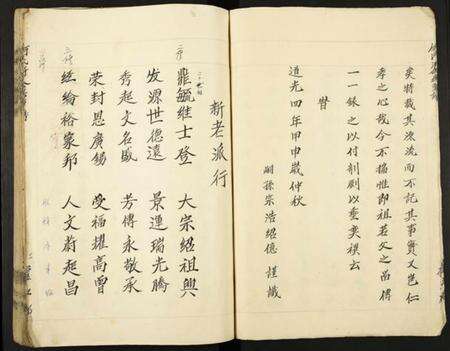 矣特裁其源流而不記其事實又豈仁
孝之心哉今不揣惟即祖若父之所傳
一一錄之以付剞劂以垂奕禩云
旹
道光四年甲申歲仲秋
嗣孫宗浩紹億 謹識
新老派行
毓維士登 大宗紹祖興
发源世德遠 景運瑞光騰
秀起文名盛 芳傳永敬承
荣封恩廣錫 受福耀高曾
經綸裕家邦 人文蔚起昌